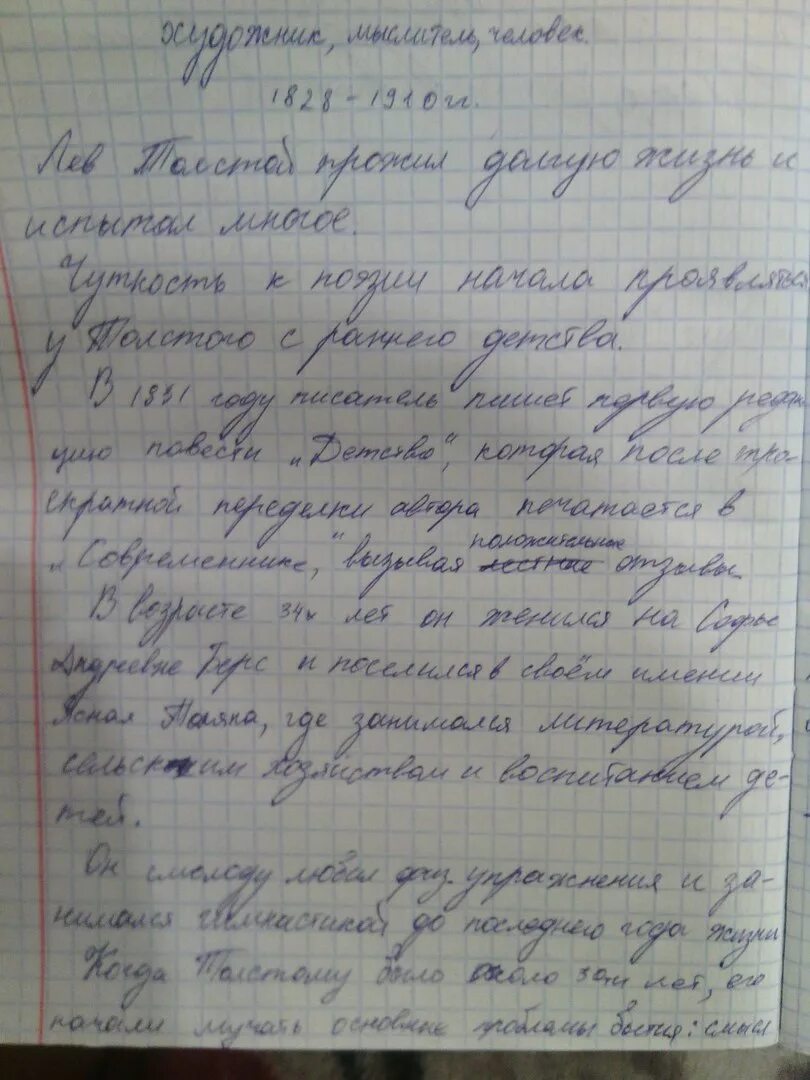 художник, мыслитель, человек.
1828-1910 гг.
Лев Толстой прожил долгую жизнь и
испытал многое.
Чуткость к поэзии начала проявляться
у Толстого с раннего детства.
В 1831 году писатель пишет первую редак
цию повести „Детство", которая после тро
екратной переделки автора печатается в
„Современнике," вызывая положительные лестные отзывы
В возрасте 34х лет он женился на Софье
Андреевне Берс и поселился в своём имении
Ясная Поляна, где занимался литературой,
сельским хозяйством и воспитанием де-
тей.
Он смолоду любил физ. упражнения и за-
нимался гимнастикой до последнего года жизни
Когда Толстому было около 30ти лет, его
начали мучать основные проблемы бытия: смысл